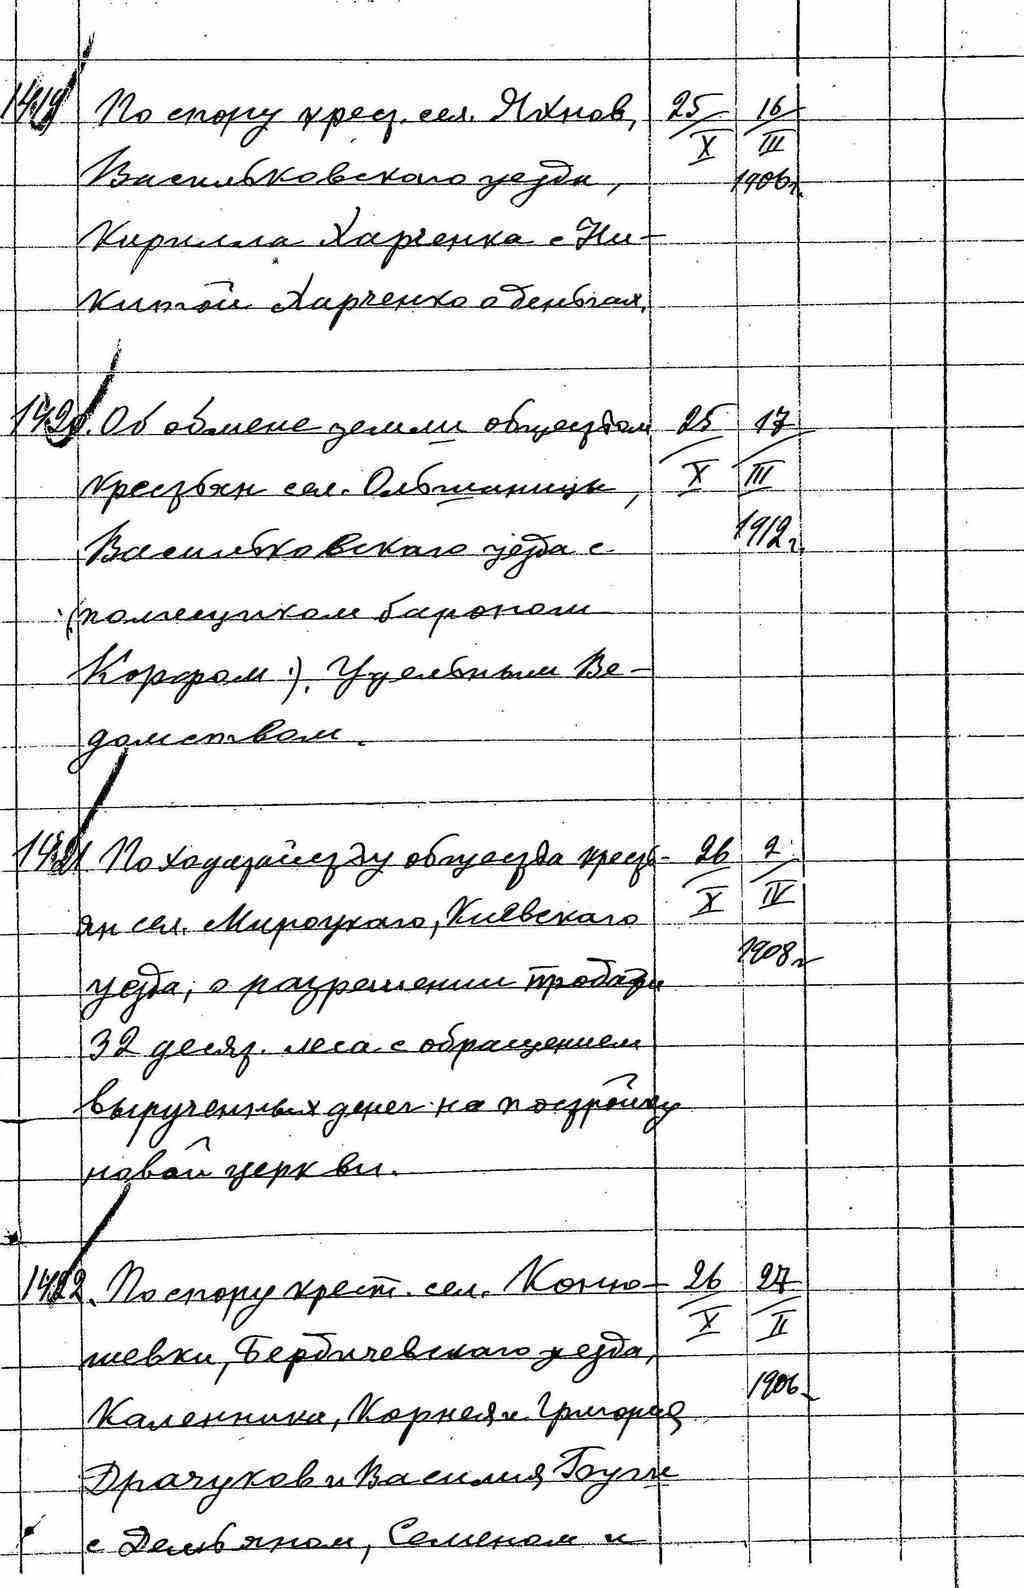 1419 По спору крест. сел. Яхнов, 25/X 16/III
Васильковского уезда, 1906г.
Кирилла Харченка с Ни-
китой Харченко о деньгах.
1420. Об обмене земли обществом 25/X 17/III
крестьян сел. Ольшаницы,
Васильковского уезда с 1912г.
(помещиком бароном
Корфом:). Удельным Ве-
домством.
1421 По ходатайству общества кресть- 26/X 2/IV
ян сел. Мироцкого, Киевского
уезда, о разрешении продажи 1908г
32 десят. леса с обращением
вырученных денег на постройку
новой церкви.
1422. По спору крест. сел. Коню- 26/X 27/II
шевки, Бердичевского уезда, 1906
Каленника, Корнея и Григория
Драчуков и Василия Буги
с Демьяном, Семеном и